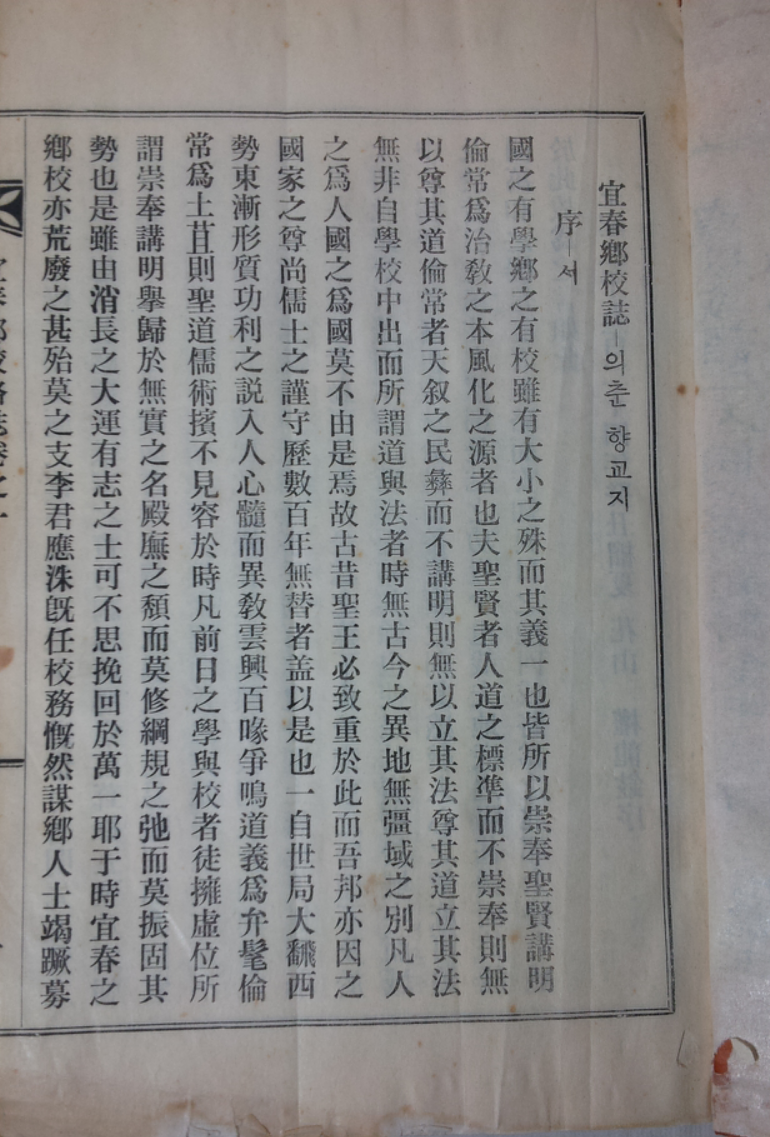 宜春鄕校誌-의춘 향교지
序-서
國之有學鄕之有校雖有大小之殊而其義一也皆所以崇奉聖賢講明
倫常爲治敎之本風化之源者也夫聖賢者人道之標準而不崇奉則無
以尊其道倫常者天叙之民彝而不講明則無以立其法尊其道立其法
無非自學校中出而所謂道與法者時無古今之異地無彊域之別凡人
之爲人國之爲國莫不由是焉故古昔聖王必致重於此而吾邦亦因之
國家之尊尚儒士之謹守歷數百年無替者盖以是也一自世局大飜西
勢東漸形質功利之説入人心髓而異敎雲興百喙爭鳴道義爲弁髦倫
常爲土苴則聖道儒術擯不見容於時凡前日之學與校者徒擁虛位所
謂崇奉講明擧歸於無實之名殿廡之頹而莫修綱規之弛而莫振固其
勢也是雖由消長之大運有志之士可不思挽回於萬一耶于時宜春之
鄕校亦荒廢之甚殆莫之支李君應洙旣任校務慨然謀鄕人士竭蹶募